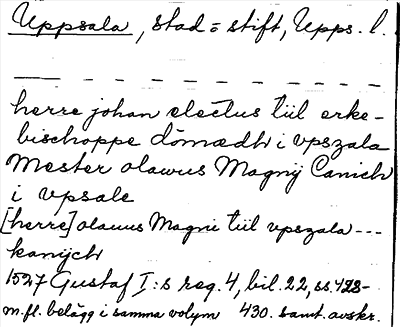 Uppsala, stad = stift, Upps. l.
— — — — — — — — — —
herre johan electus till erke-
bischoppe dömædh i vpszala
Mester olawus Magnij Canich
i vpsale
[herre] olauus Magni till vpszala ---
kanijch
1527 Gustaf I:s reg. 4, bil. 22, ss. 428-
m.fl. belägg i samma volym 430. samt. avskr.